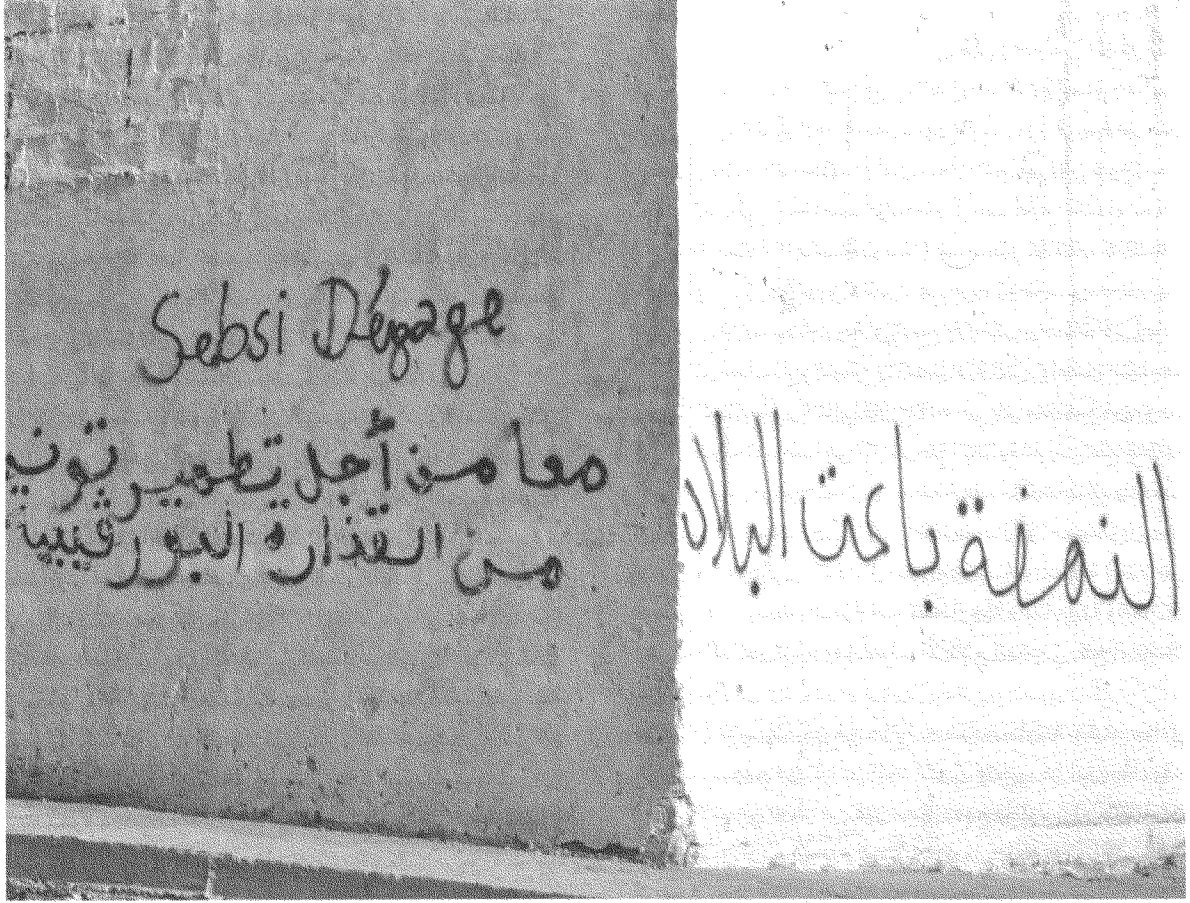 Sebsi Dégage
معا من أجل تطهير تونس
من القذارة البورقيبية
النهضة باعت البلاد